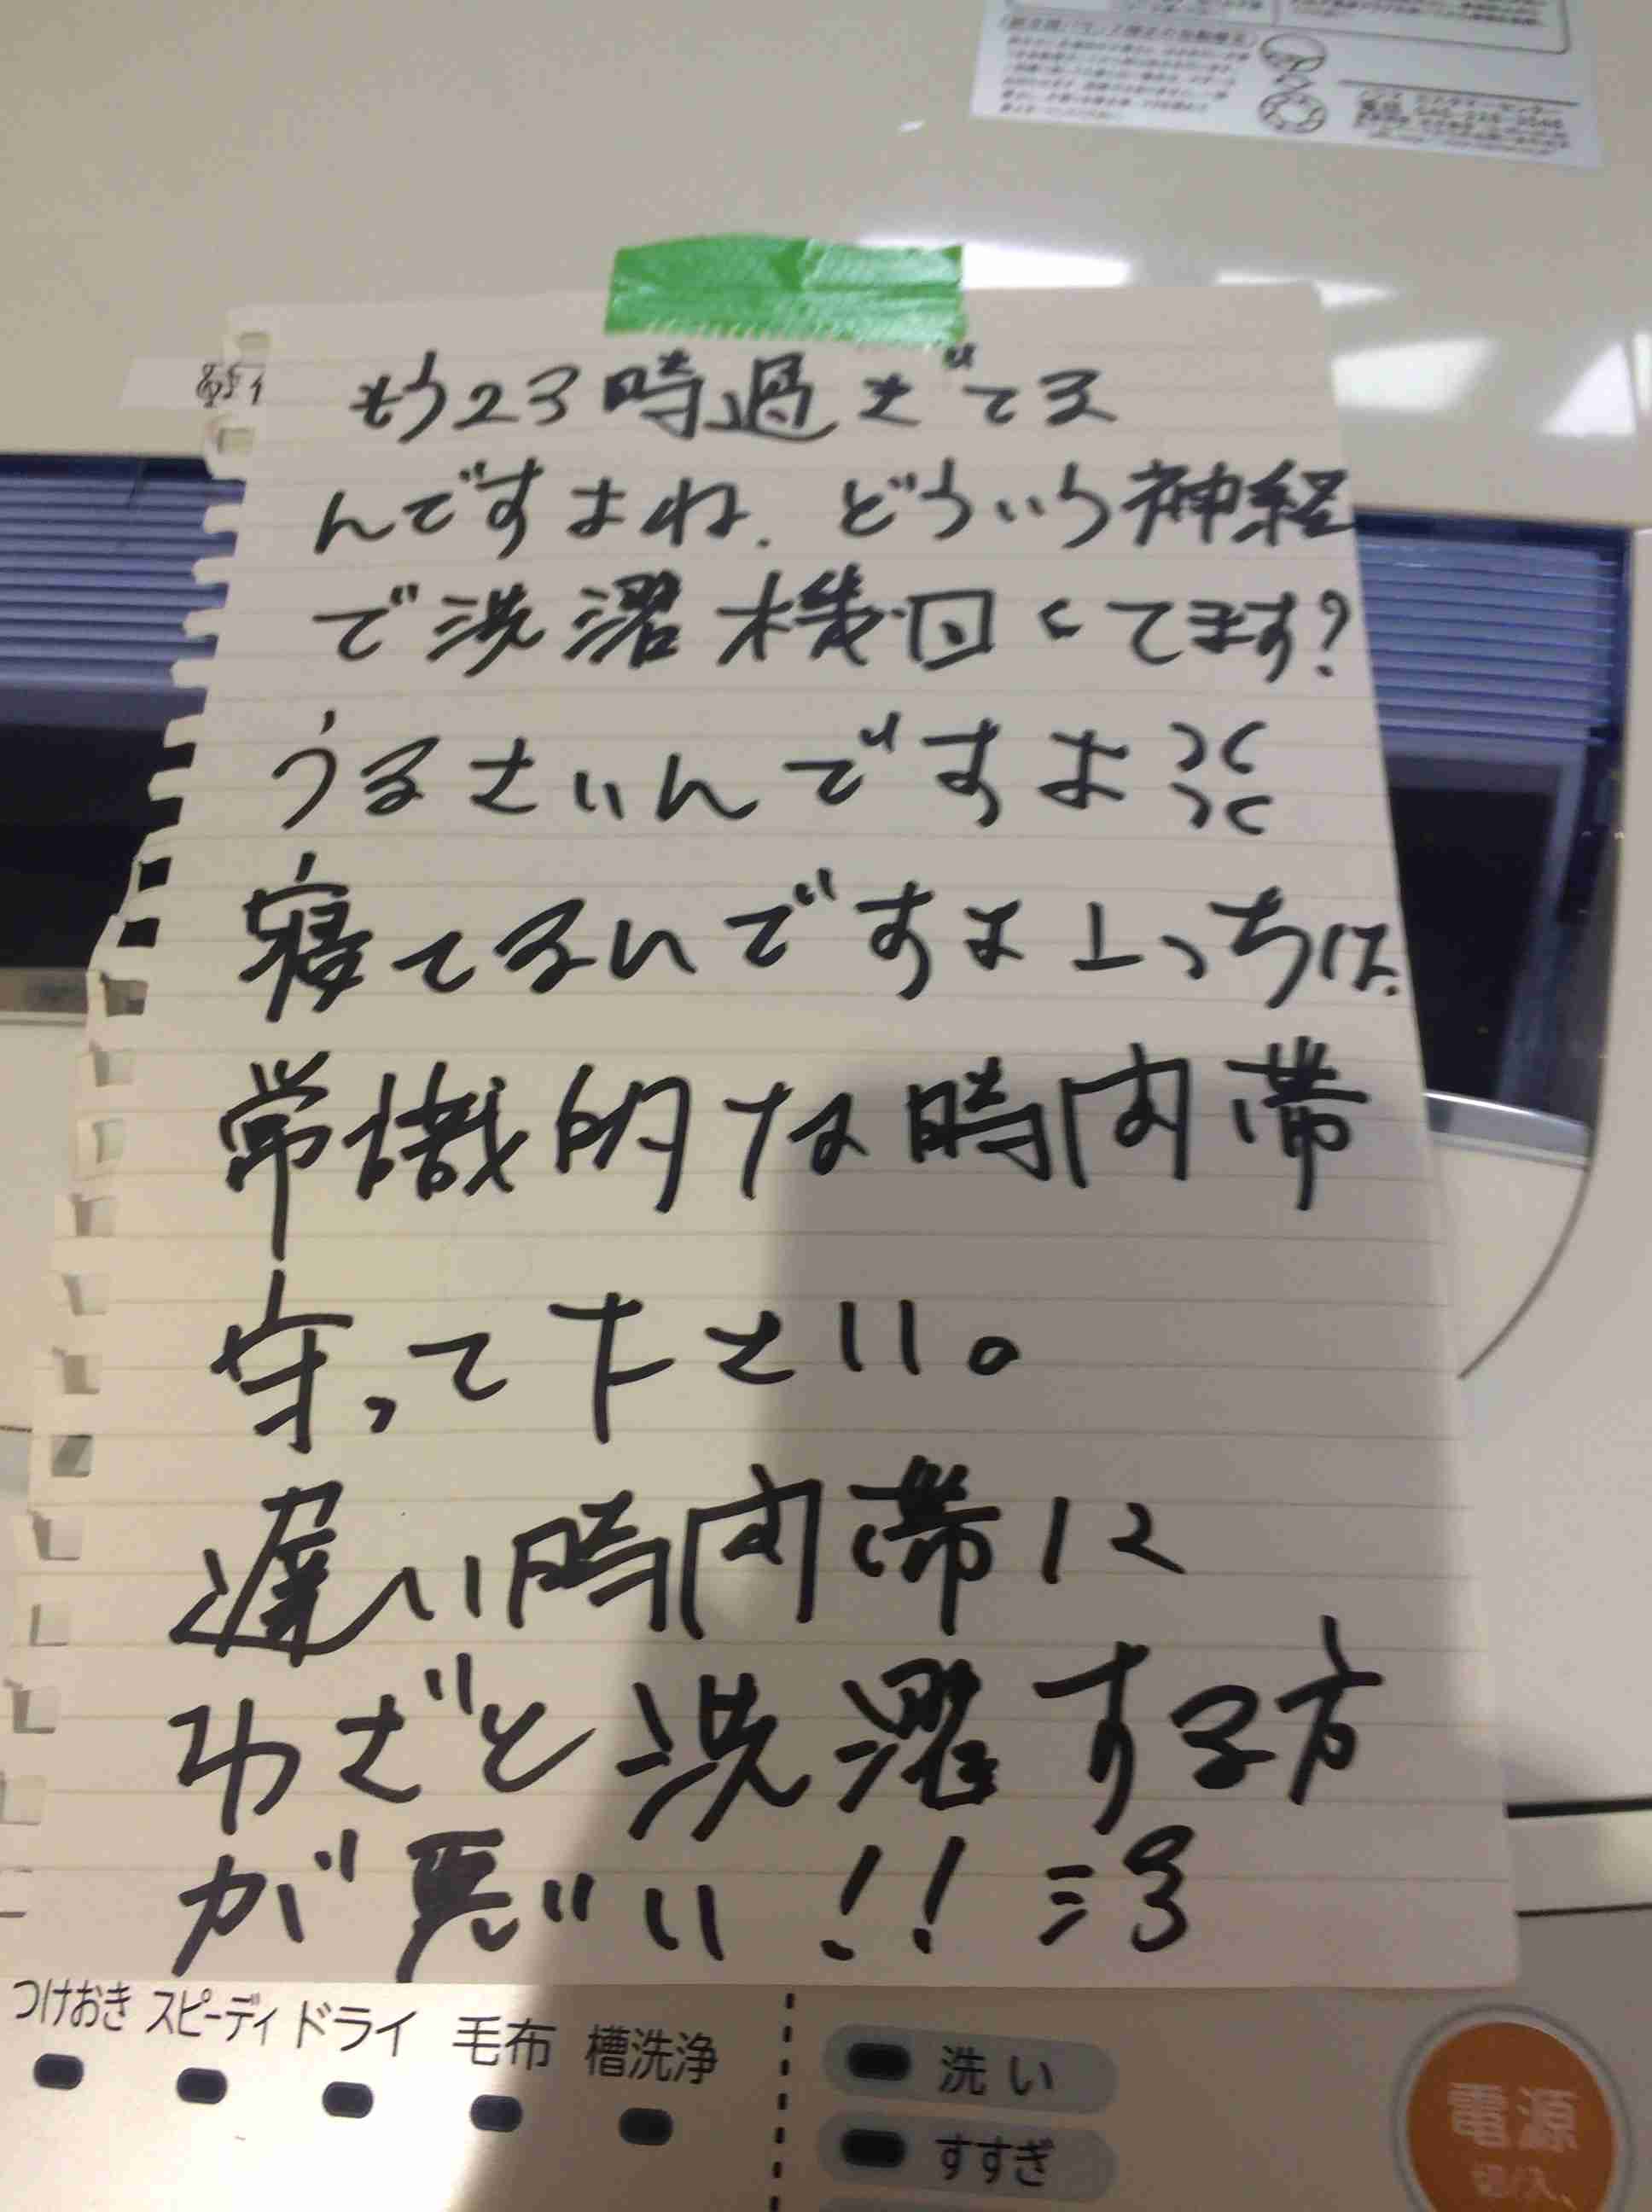 もう23時過ぎてる
んですよね.どういう神経
で洗濯機回してます?
うるさいんですよ
寝てるんですよこっちは.
常識的な時間帯
守って下さい。
遅い時間帯に
わざと洗濯する方
が悪い!!
つけおき スピーディ ドライ 毛布 槽洗浄
洗い
すすぎ
電源
切/入